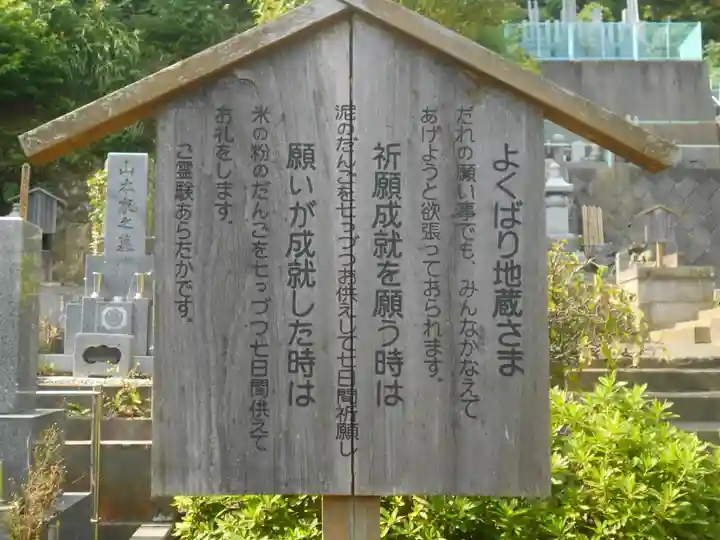 よくばり地蔵さま
だれの願い事でも、みんなかなえて
あげようと欲張っておられます。
祈願成就を願う時は
泥のだんごを七っづつお供えして七日間祈願し
願いが成就した時は
米の粉のだんごを七っづつ七日間供えて
お礼をします。
ご霊験あらたかです。
山本家之墓